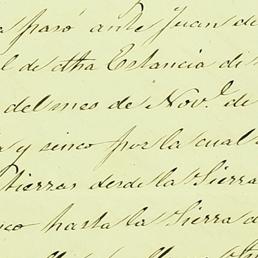 a pasó ante Juan de
l de dha Estancia di
del mes de Nov.e de
a y sinco por la cual
tierras desde la Sierra
nco hasta la Sierra d